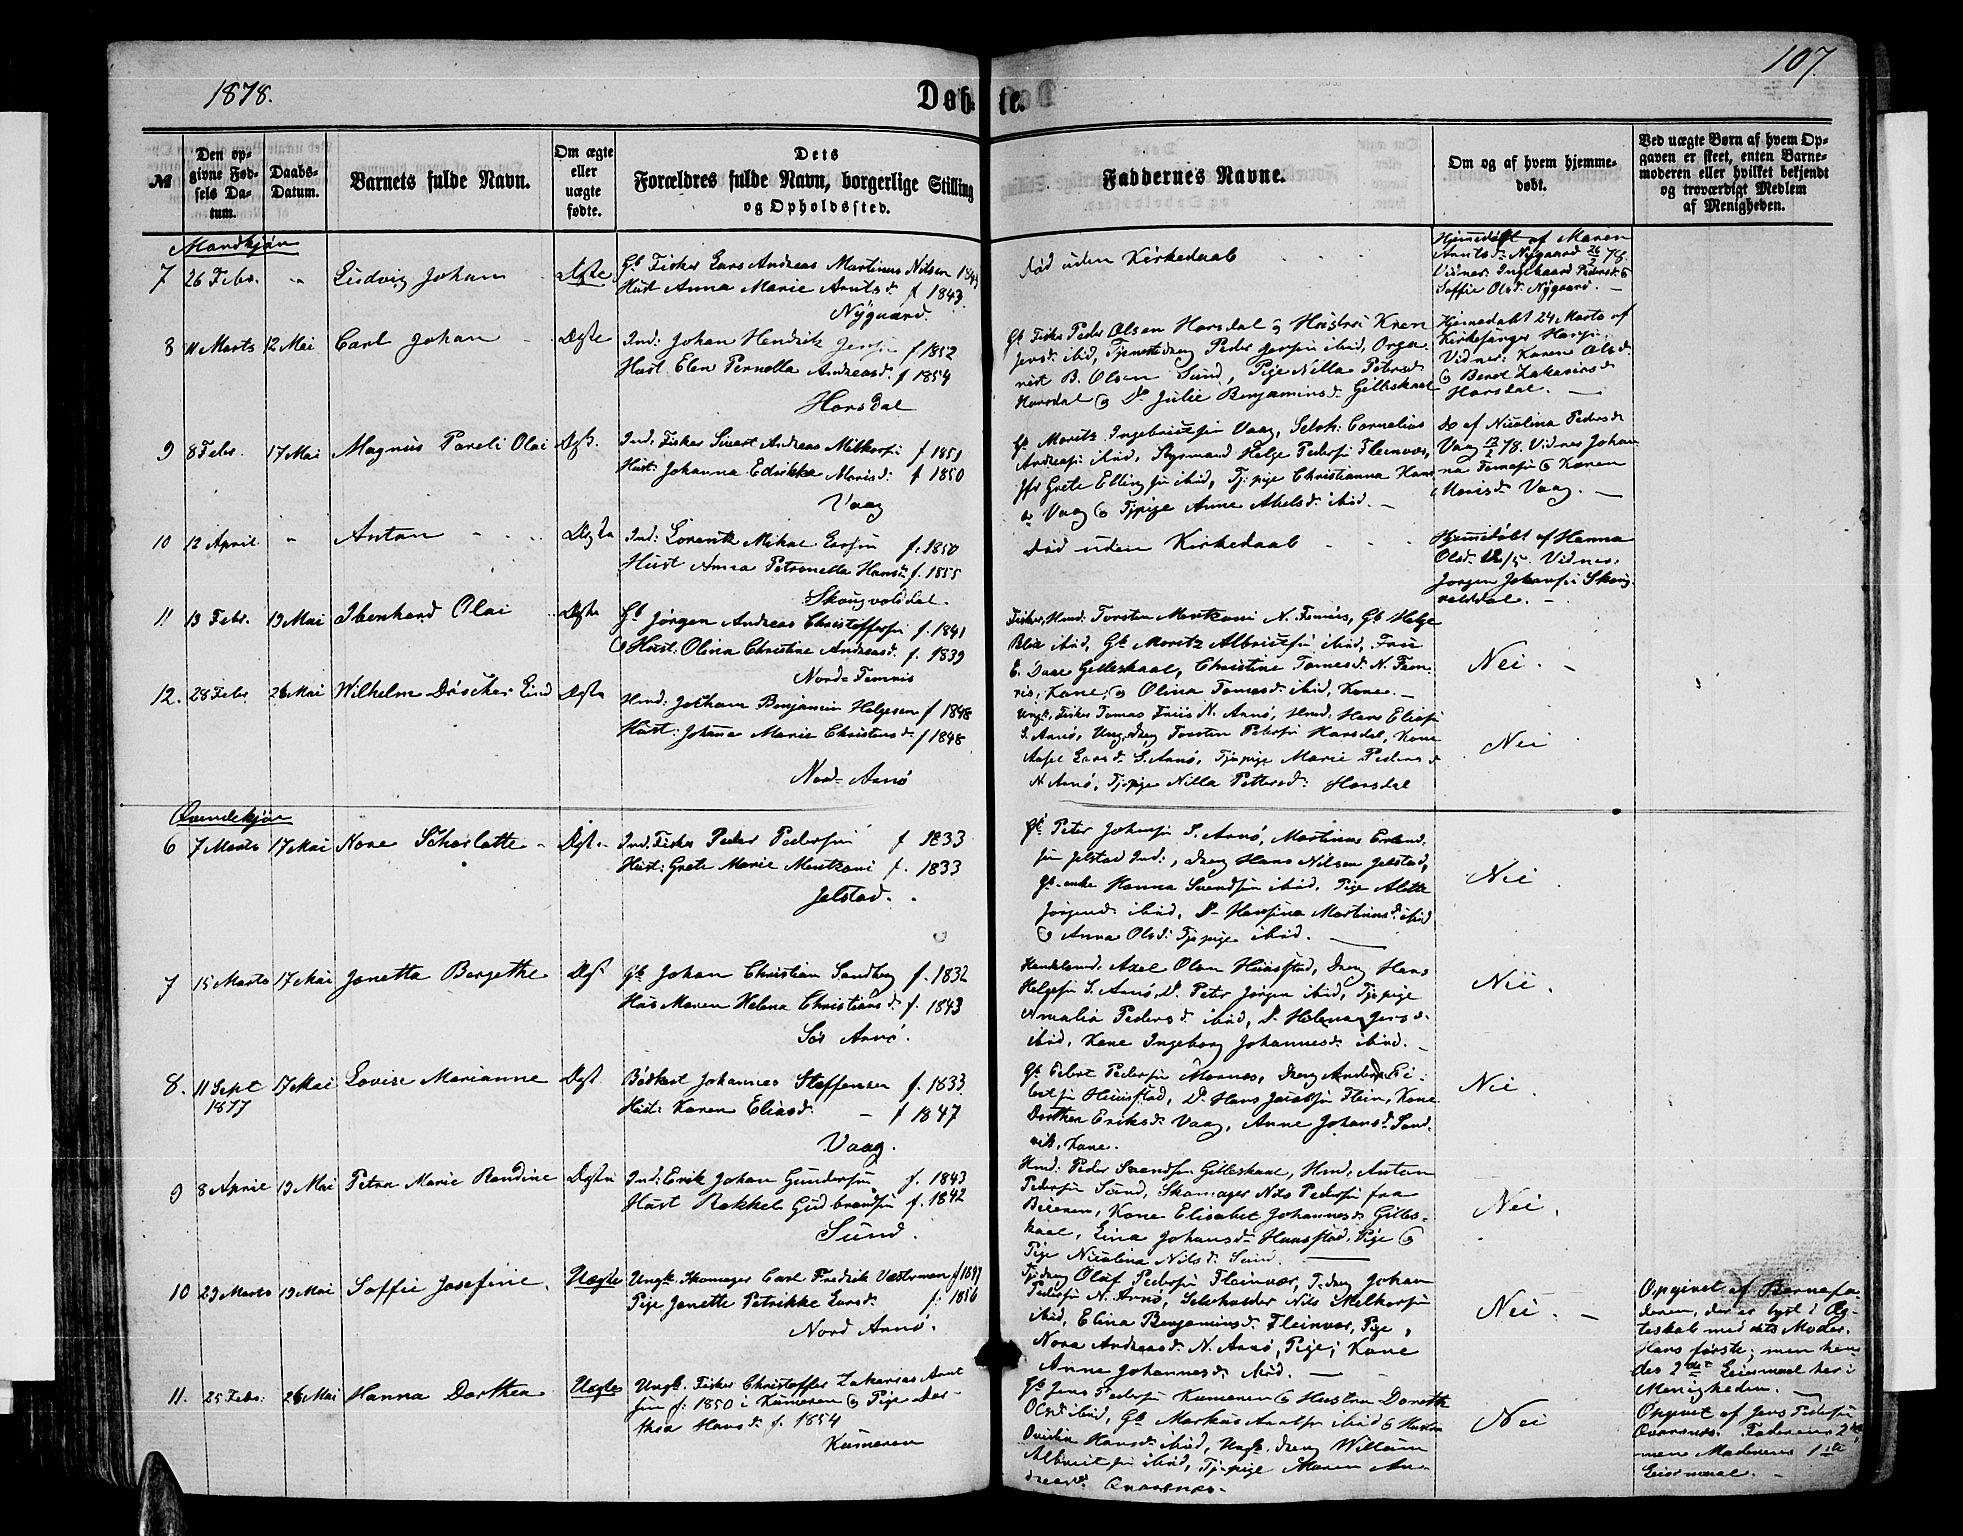 1878.
Døbte.
107.
№
Den opgivne Fødsels Datum.
Daabs-Datum.
Barnets fulde Navn.
Om ægte eller uægte fødte.
Dets Forældres fulde Navn, borgerlige Stilling og Opholdssted.
Faddernes Navne.
Om og af hvem hjemmedøbt.
Ved uægte Børn af hvem Opgaven er skeet, enten Barnemoderen eller hvilket bekjendt og troværdigt Medlem af Menigheden.
Mandkjøn
7 26 Febr. " Ludvig Johan Ægte
Gb. Fisker Lars Andreas Martinus Nilsen
Hust Anna Marie Arntsd. f 1843.
Nygaard.
død uden Kirkedaab
Hjemmedøbt af Maren
Arntsd. Nygaard 26/2 78.
Vidner: Ingeborg Pedersd. &
Soffie Olsd. Nygaard. —
8 11 Marts 12 Mai Carl Johan Ægte
Ind: Johan Hendrik f 1852
Hust Elen Pernella Andreasd. f 1854
Horsdal
Gb. Fisker Peder Olsen Horsdal & Hustru Karen
Jensd. ibid, Tjenestedreng Peder Jensen ibid, Orga-
nist B. Olsen Sund, Pige Nilla Petersd
Horsdal & Do Julie Benjaminsd. Gilleskaal
Hjemmedøbt 24 Marts af
Kirkesanger
Vidner: Karen Olsd.
& Beret Zakariasd
Horsdal. —
9 8 Febr. 17 Mai Magnus Pareli Olai Ægt.
Ind: Fisker Andreas Melkersen f 1851
Hust: Johanna Edrikka f 1850
Vaag
Gb. Moritz Ingebrigtsen Vaag, Selvh: Cornelius
Andreassen ibid, Styrmand Helge Pedersen Fleinvær,
Grete ibid, Tj: pige Christianna Hans
Vaag & Tjpige Anne Abelsd. ibid. —
do af Nicolina Pedersd
Vaag 78. Vidner Johan-
na & Karen
Vaag. —
10 12 April " Anton Ægte
Ind: Lorentz Mikal f. 1850
Hust Anna Petronella Hansd. f. 1855
Skougvoldsdal.
død uden Kirkedaab
Hjemmedøbt af Hanna
Olsd. Vidner,
Jørgen Johansen Skoug-
voldsdal. —
11 13 Febr. 19 Mai Ibenhard Olai Ægte
Gb Jørgen Andreas Christoffersen f. 1841
& Hust: Olina Christine Andreasd. f. 1839
Nord-Femris
Fisker, Hmd. Torsten N. Femris, Gb Helge
ibid, Gb Moritz Albrigtsen ibid, Frue
E. Daae Gilleskaal, Christine Tomasd. N. Fem-
ris, Kone, & Olina Tomasd. ibid, Kone. —
Nei. —
12. 28 Febr. 26 Mai Wilhelm Døscher Lind Ægte
Hmd: Jotham Benjamin Helgesen f 1848
Hust: Johana Marie Christensd. f 1848.
Nord-Arnø
Ungk. Fisker Tomas Friis N. Arnø, Hmd. Hans
S. Arnø, Ung.dreng Torsten Petersen Horsdal, Kone
Larsd. S. Arnø, Tj: pige Marie Pedersd
N Arnø, Tj: pige Nilla Pettersd. Horsdal
Nei
Qvindekjøn
6 7 Marts 17 Mai Nore Scharlotte Ægt
Ind. Fisker Peder Pedersen f 1833
Hust: Grete Marie f. 1833
Jelstad.
Gb. Peter Johansen S. Arnø, Martinus Erland-
sen Jelstad Ind:, dreng Hans Nilsen Jelstad,
Gb-enke Hanna Svendsen ibid. Pige Alette
Jørgensd. ibid, Do Hansina Martinusd. ibid
& Anna Olsd. Tj: pige ibid. —
Nei
7 15 Marts 17 Mai Janetta Bergethe Ægt
Gb Johan Christian Sandberg f. 1832
Hus Maren Helena Christiansd. f. 1843
Sør Arnø.
Handelsmd. Axel Olsen Hunstad, dreng Hans
Helgesen S. Arnø, Do Peter Jørgen ibid, Tj: pige
Amalia Pedersd. ibid, Do Helena Jensd.
ibid, Kone Ingeborg Johannesd. ibid. —
Nei.
8. 11 Sept 1877 17 Mai Lovise Marianne Ægt
Johannes Steffensen f. 1833
Hust: Karen Eliasd. — f 1847
Vaag.
Gb Pedersen dreng
Hunstad, Do Hans Jacobsen Flein, Kone
Dorthea Eriksd. Vaag, Anne Johansd. Sand-
vik, Kone.
Nei.
9 8 April 19 Mai Petra Marie Randine Ægte
Ind: Erik Johan Gundersen f. 1843
Hust Rakkel Gudbrandsen f. 1842
Sund.
Hmd: Peder Svendsen Gilleskaal, Hmd. Anton
Pedersen Sund, Skomager Nils Pedersen fra
Beieren, Kone Elisabet Johannesd. Gilles-
kaal, Lina Johansd. Hunstad, Pige &
Pige Nicolina Nilsd. Sund. —
Nei.
10 29 Marts 19 Mai Soffie Josefine. Uægte
Ungk. Skomager Carl Fredrik Vesterman
Pige Janette Petrikke Larsd. f. 1856
Nord Arnø.
Tj: dreng Oluf Pedersen Fleinvær, Tj: dreng Johan
Pedersen N. Arnø, Selveholder Nils Melkersen
ibid, Elina Benjaminsd. Fleinvær, Pige,
Nora Andreasd. N. Arnø, Pige; Kone
Anne Johannesd. ibid. —
Nei. —
Opgivet af Barnefa-
deren, der er lyst i Æg-
teskab med dets Moder.
Hans første; men hen-
des 2det Leiermaal her i
Menigheden. —
11. 25 Febr: 26 Mai Hanna Dorthea Uægte
Ungk. Fisker Christoffer Zakarias Arnt
sen f: 1850 i Kumeren & Pige Dor-
thea Hansd. f. 1854
Kumeren
Gb Jens Pedersen Kumeren & Hustru Dorethe
Olsd. ibid, Gb Markus ibid & Hustru
Hansd. ibid, Ungk. dreng William
Albrigtsen ibid, Tj: pige Maren An-
dreasd. Qvarsnes.
Nei
Opgivet af Jens Pedersen
Qvarsnes. Faderens 2det
men Moderens 1ste
Leiermaal. —